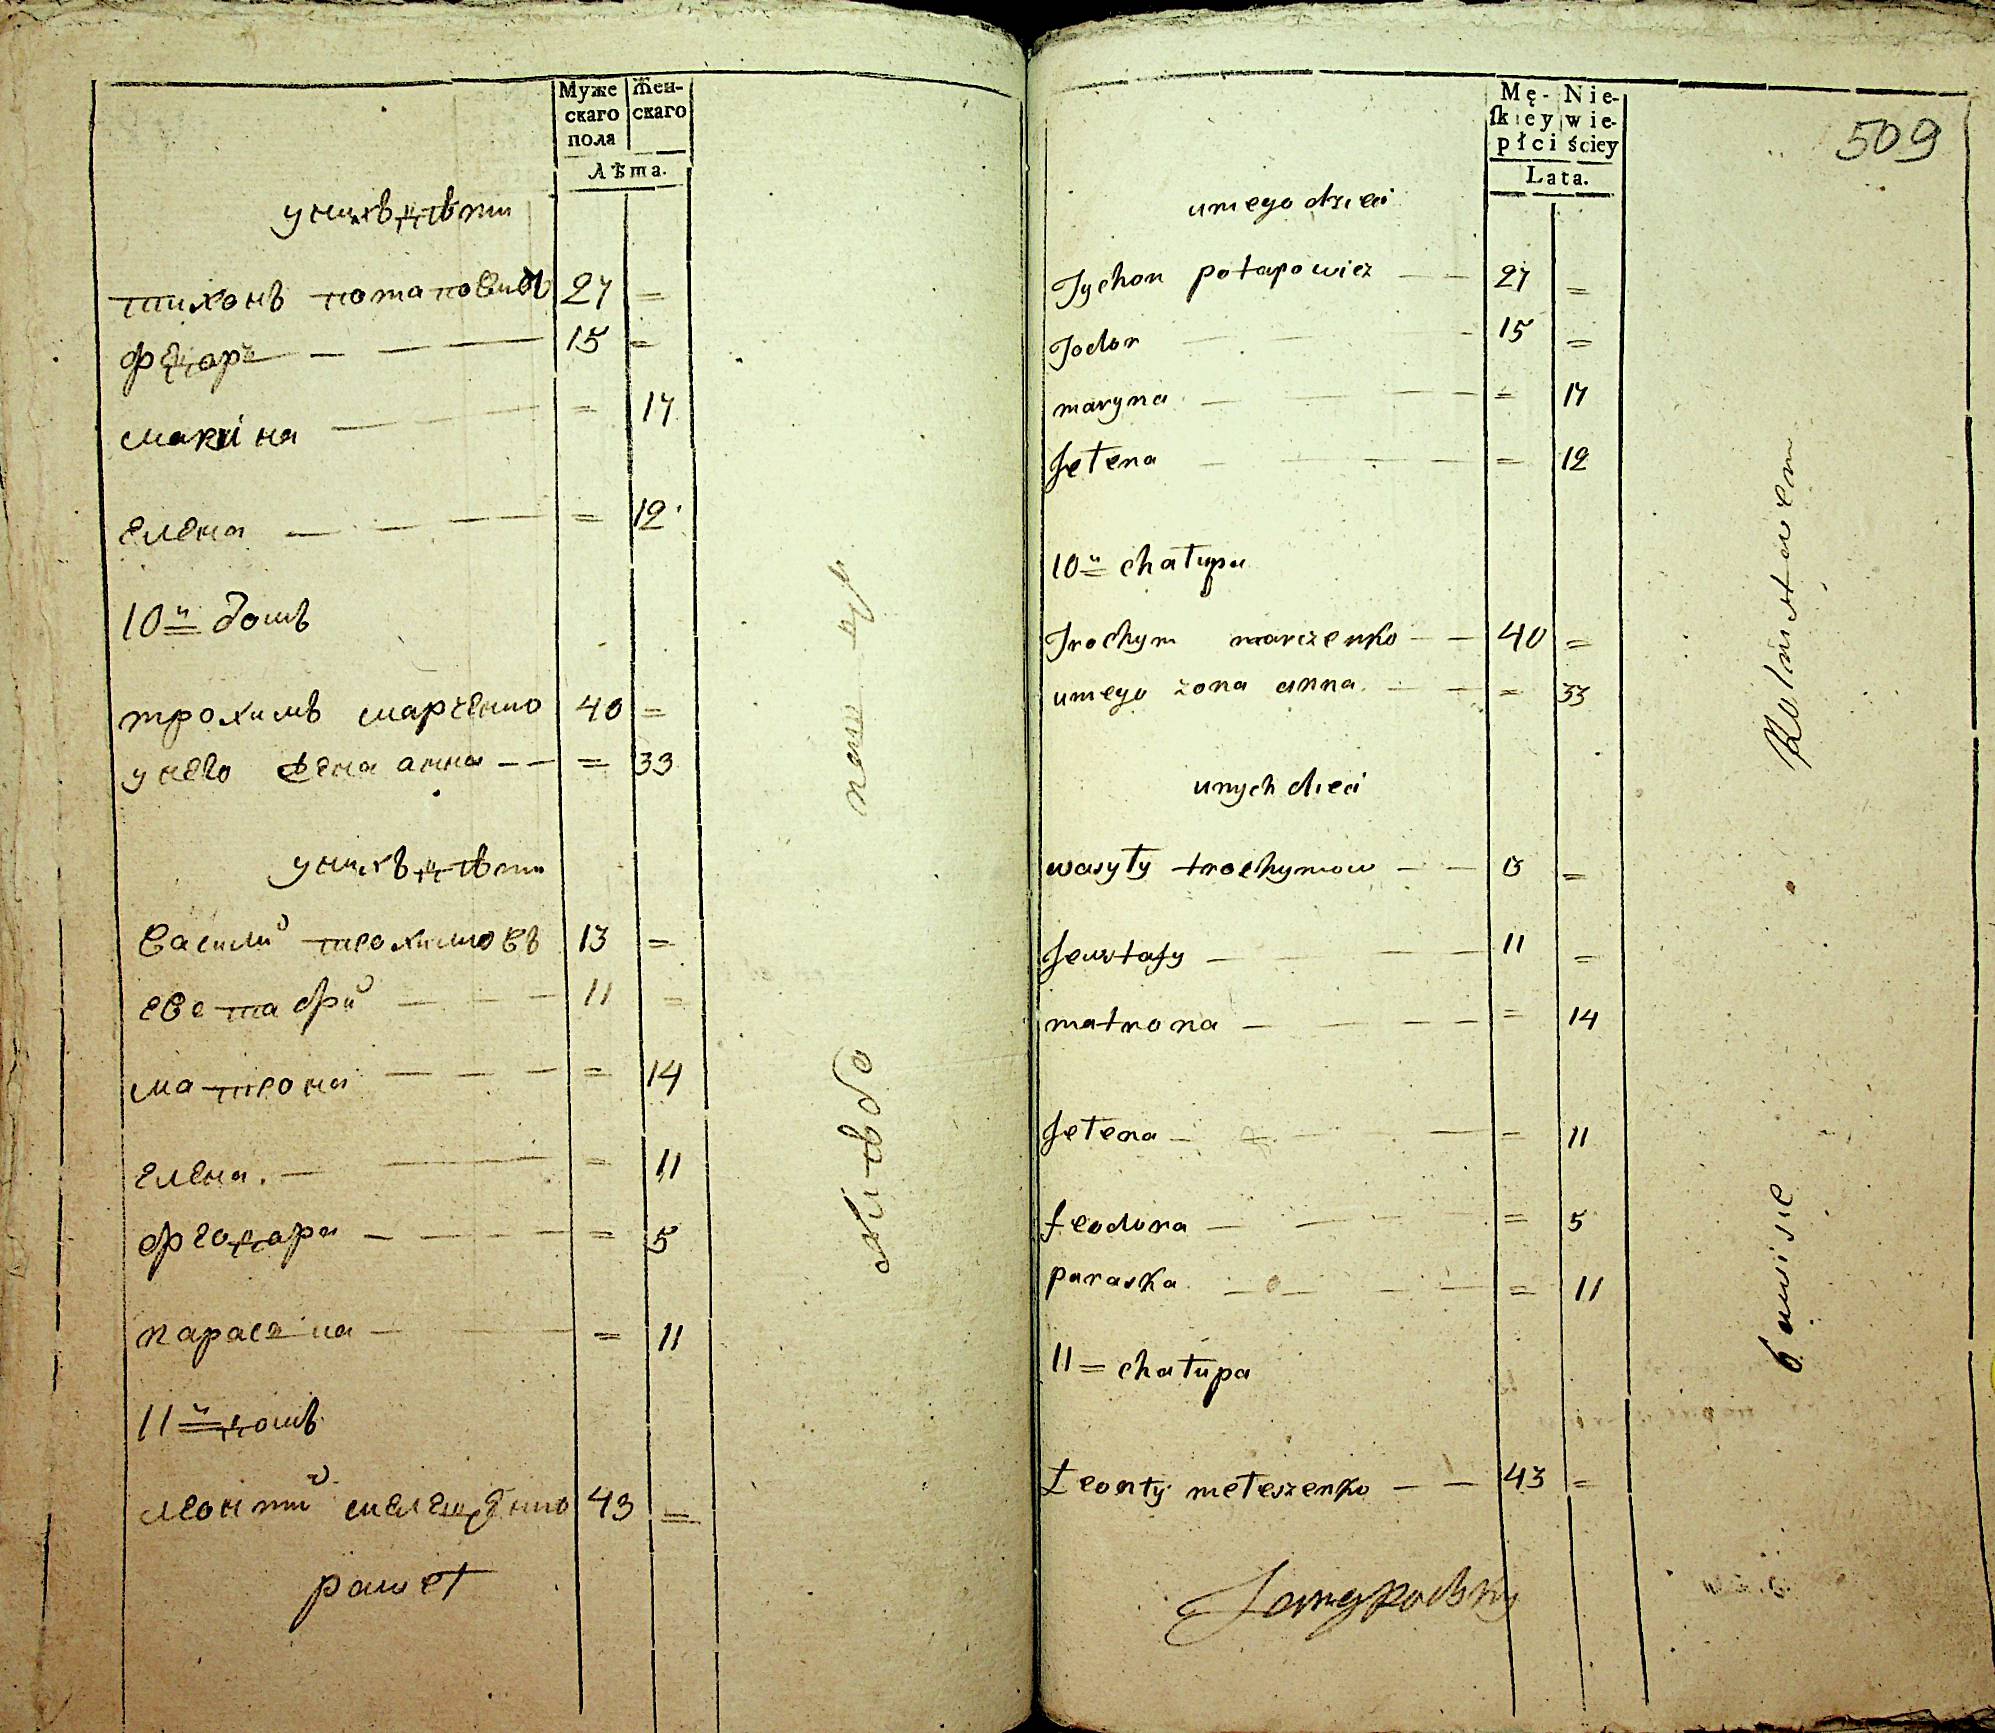 Муже
скаго
пола
Жен-
скаго
Лѣта.
унихъ дѣти
тихонъ потаповичъ 27 =
Фєдоръ — — — 15 =
марина — — — = 17
елена — — — = 12
10й домъ
трохимъ марченко 40 =
унего жена анна — — = 33
унихъ дѣти
василий трохимовъ 13 =
евстафий — — — 11 =
матрона — — — = 14
елена. — — = 11
феодора — — — — = 5
параскa — — = 11
11й домъ
леонтий мелещенко 43 =
paweł
Mę-
ſkiey
płci
Nie-
wie-
ściey
Lata.
509
umego dzieci
Tychon potapowicz — — 27 =
Fodor — — — 15 =
maryna — — — = 17
Jełena — — — = 12
10й chałupa
Trochym marczenko — — 40 =
umego żona anna — — = 33
unych dieci
wasyły trochymow — — 13 =
Jewstafy — — — 11 =
matrona — — — = 14
Jełena — — — = 11
feodora — — — = 5
paraska — — — = 11
11 = chałupa
Łeonty mełeszenko — — 43 =